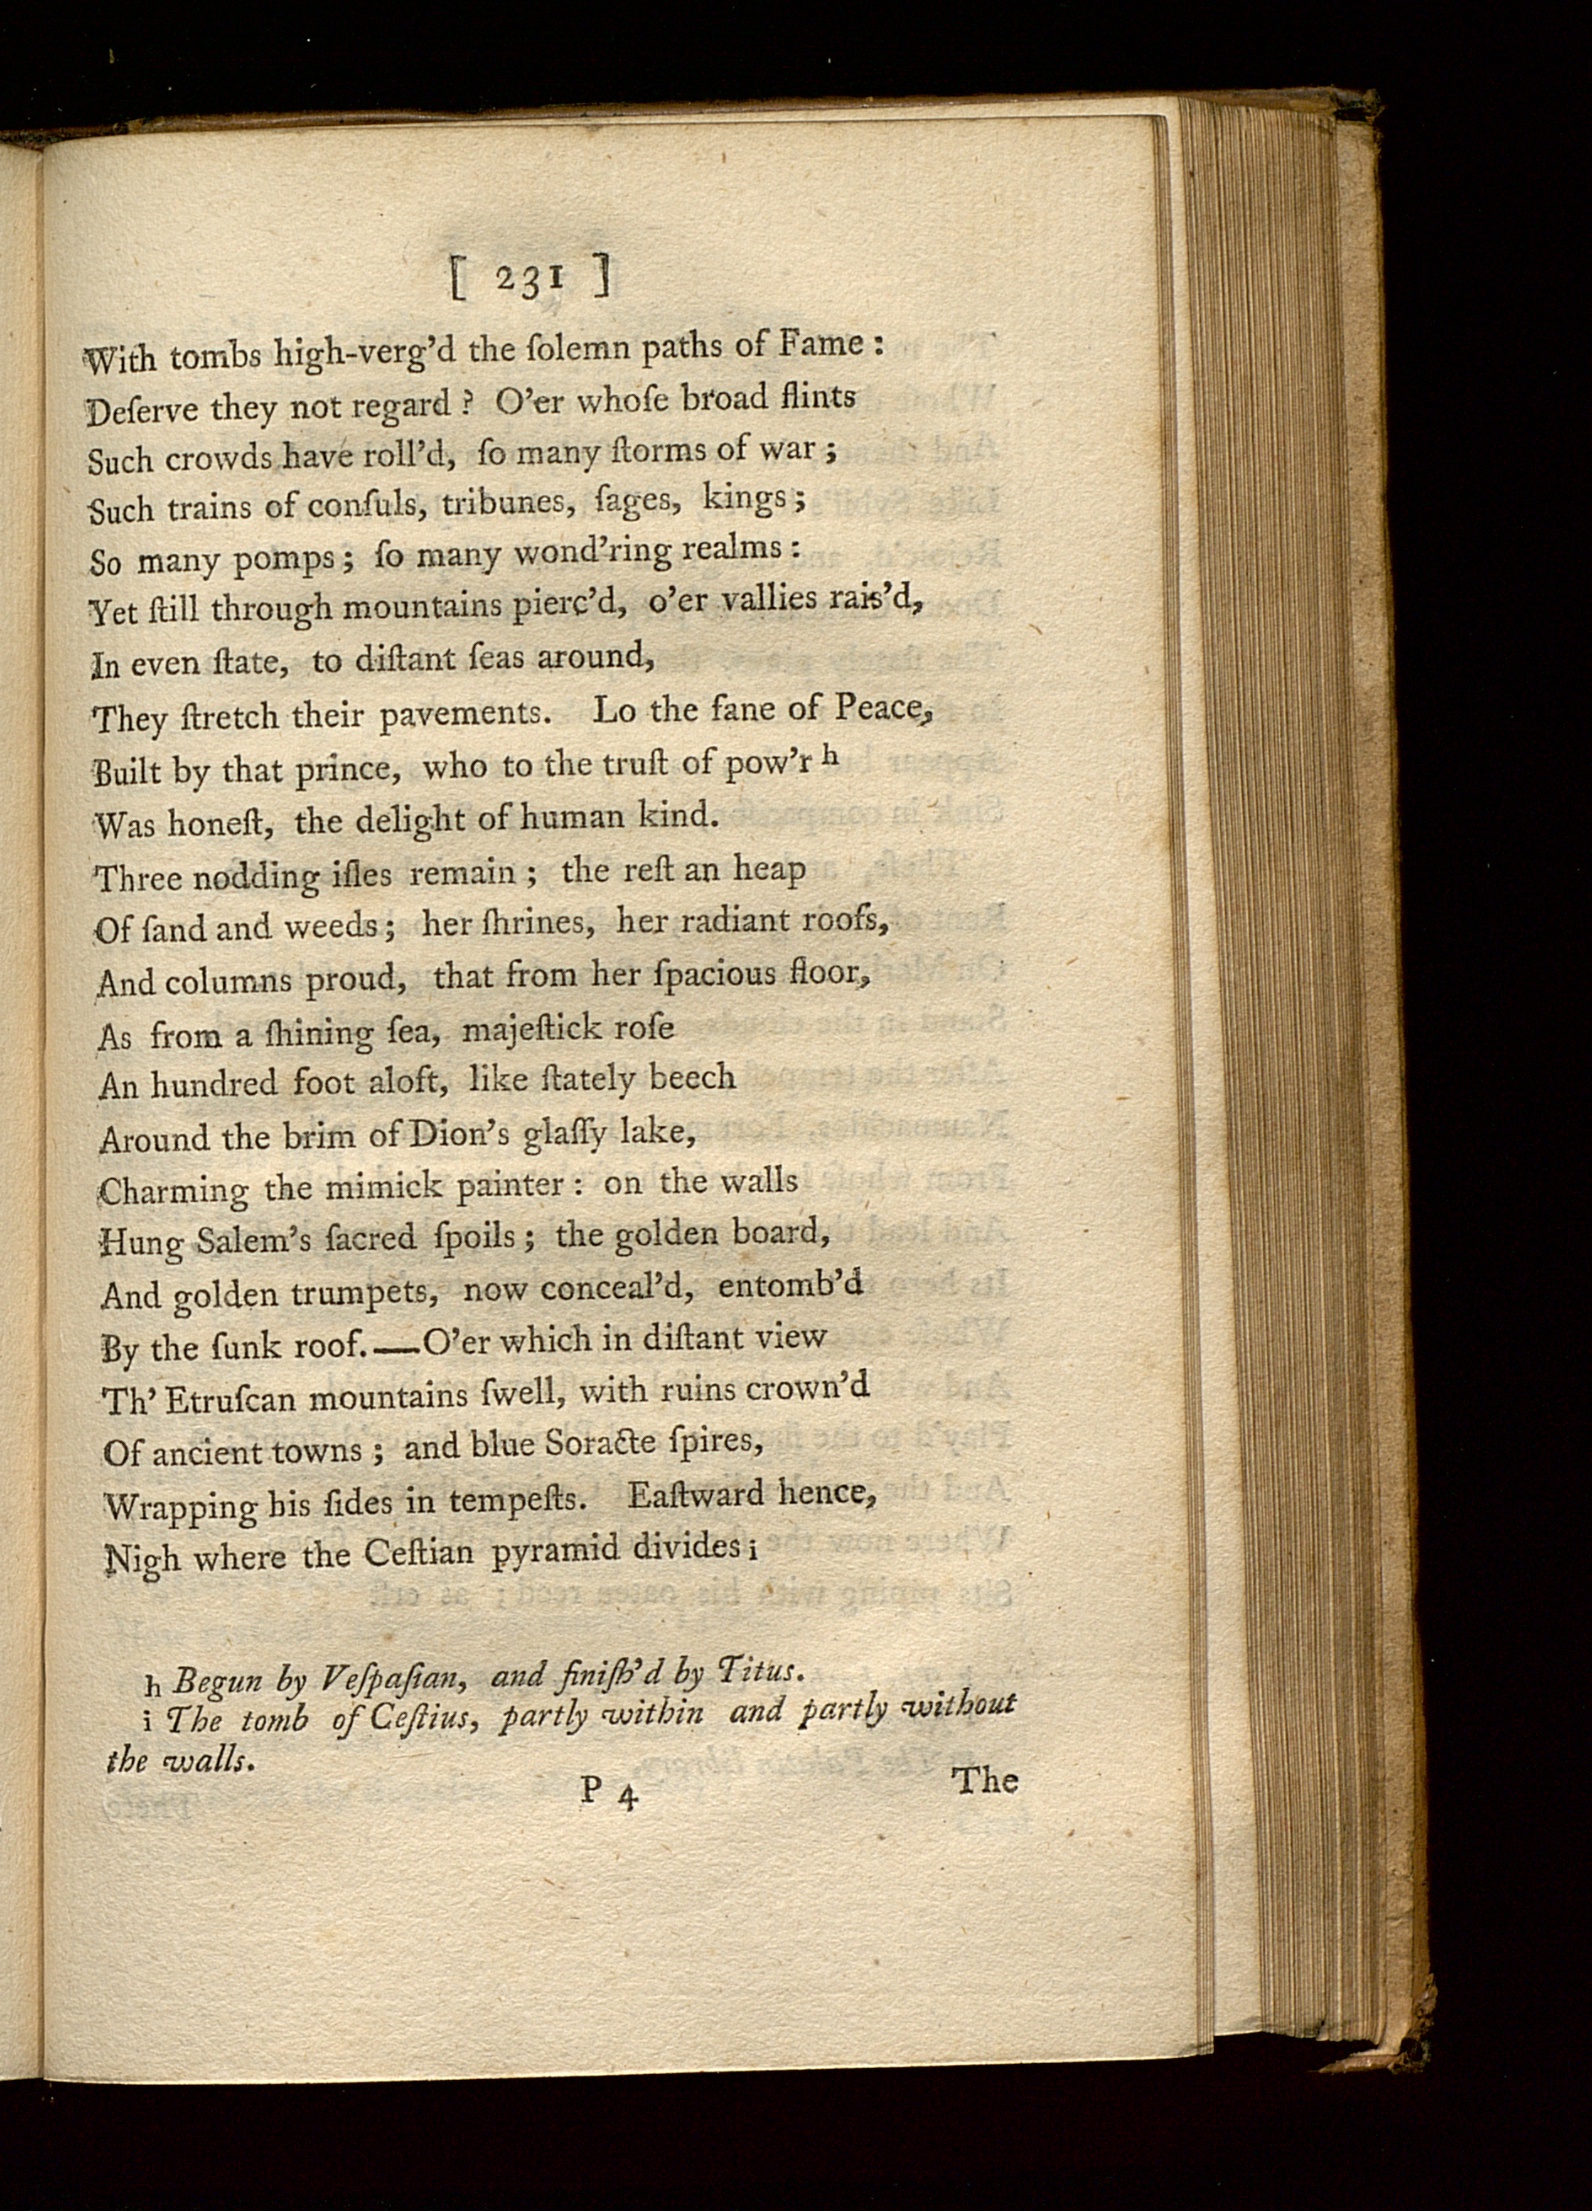 [ 231 ]
With tombs high-verg'd the ſolemn paths of Fame :
Deſerve they not regard ? O'er whoſe broad flints
Such crowds have roll'd, ſo many ſtorms of war ;
Such trains of conſuls, tribunes, ſages, kings ;
So many pomps ; ſo many wond'ring realms :
Yet ſtill through mountains pierc'd, o'er vallies rais'd,
In even ſtate, to diſtant ſeas around,
They ſtretch their pavements. Lo the fane of Peace,
Built by that prince, who to the truſt of pow'r h
Was honeſt, the delight of human kind.
Three nodding iſles remain ; the reſt an heap
Of ſand and weeds ; her ſhrines, her radiant roofs,
And columns proud, that from her ſpacious floor,
As from a ſhining ſea, majeſtick roſe
An hundred foot aloft, like ſtately beech
Around the brim of Dion's glaſſy lake,
Charming the mimick painter : on the walls
Hung Salem's ſacred ſpoils ; the golden board,
And golden trumpets, now conceal'd, entomb'd
By the ſunk roof.—O'er which in diſtant view
Th' Etruſcan mountains ſwell, with ruins crown'd
Of ancient towns ; and blue Soracte ſpires,
Wrapping his ſides in tempeſts. Eaſtward hence,
Nigh where the Ceſtian pyramid divides i
h Begun by Veſpaſian, and finiſh'd by Titus.
i The tomb of Ceſtius, partly within and partly without
the walls.
P 4 The